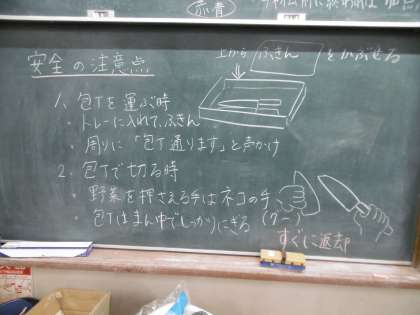 安全の注意点
上から ふきん をかぶせる
1、包丁を運ぶ時
・トレーに入れて、ふきん
・周りに「包丁通ります」と声かけ
2、包丁で切る時
・野菜を押さえる手はネコの手
(グー)
・包丁はまん中でしっかりにぎる
すぐに返却